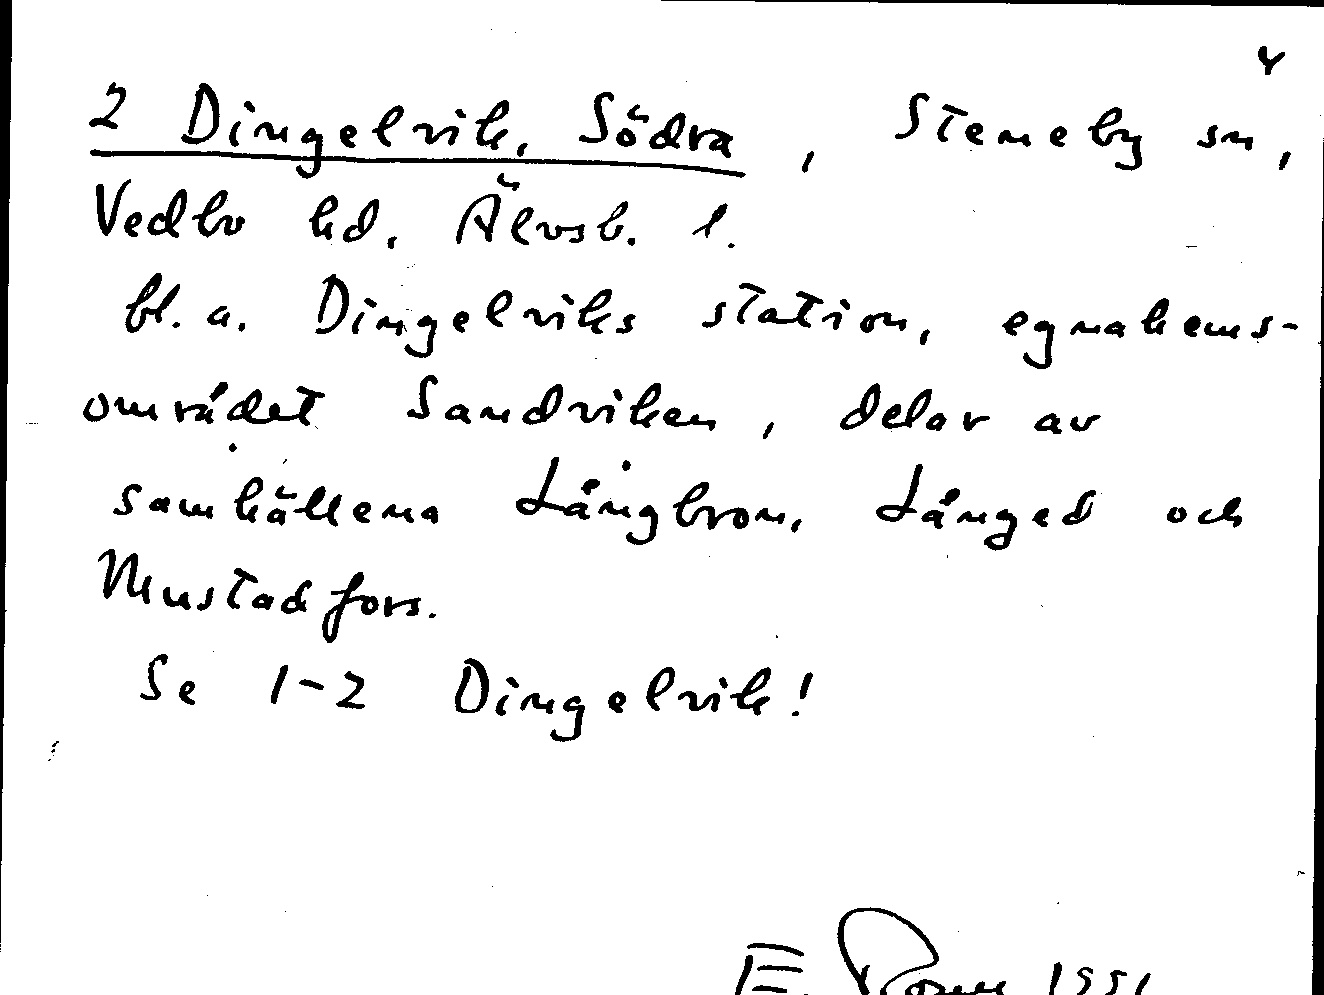 Y
2 Dingelvik, Södra, Steneby sn,
Vedbo hd. Älvsb. l.
bl. a. Dingelviks station, egnahems-
området Sandviken, delar av
samhällena Långbron, Långed och
Mustadfors.
Se 1-2 Dingelvik!
E. 1991